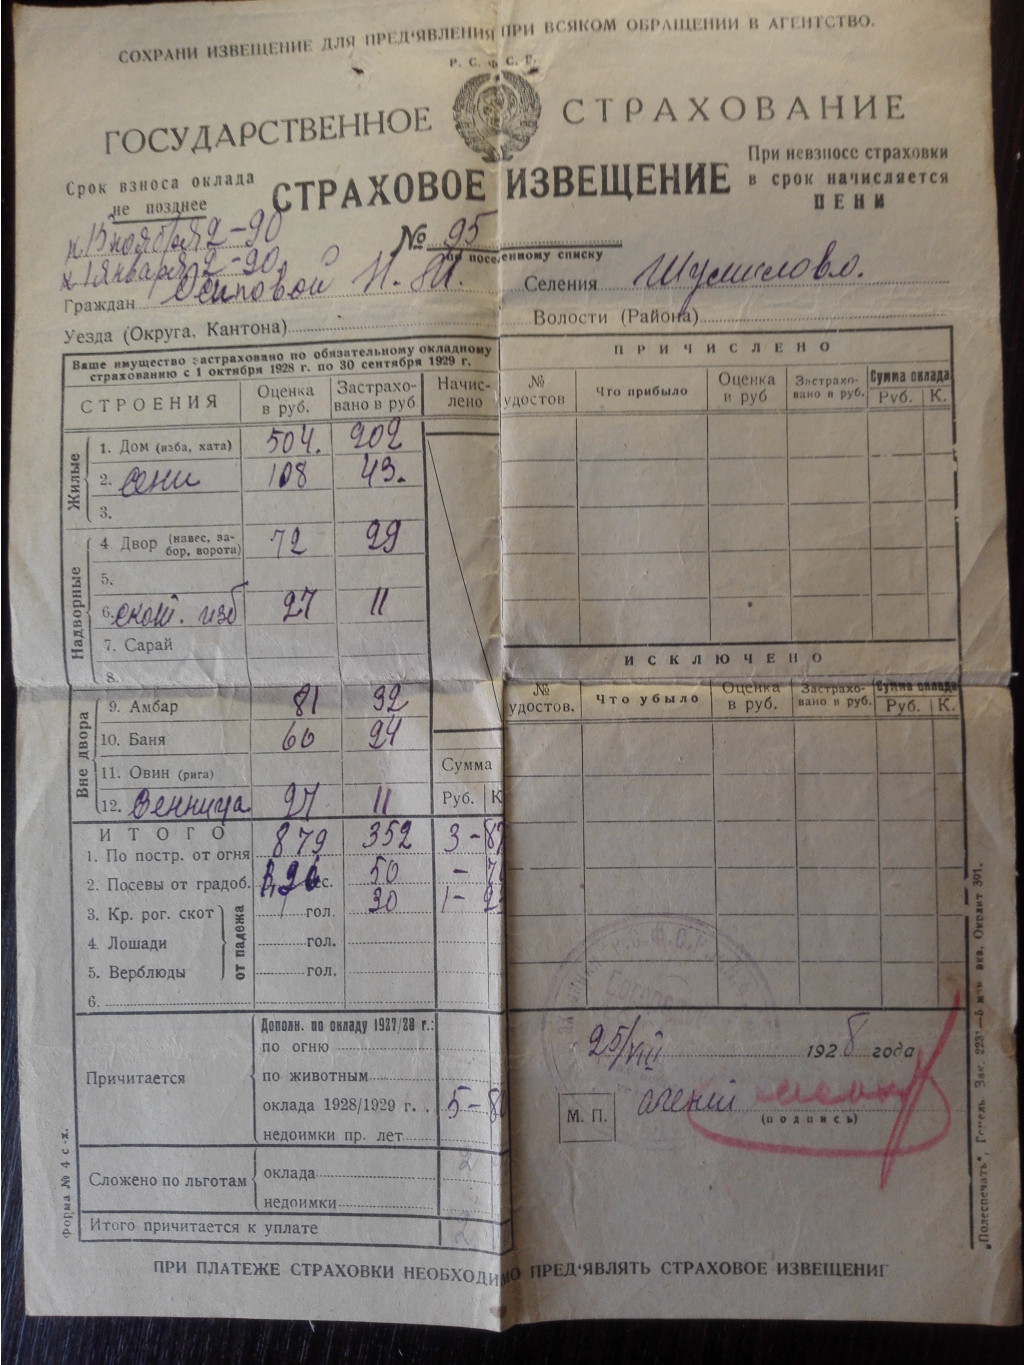 СОХРАНИ ИЗВЕЩЕНИЕ ДЛЯ ПРЕД'ЯВЛЕНИЯ ПРИ ВСЯКОМ ОБРАЩЕНИИ В АГЕНТСТВО.
Р. С. Ф. С. Р.
ГОСУДАРСТВЕННОЕ СТРАХОВАНИЕ
Срок взноса оклада
не позднее
СТРАХОВОЕ ИЗВЕЩЕНИЕ
При невзносе страховки
в срок начисляется
ПЕНИ
к 15 ноября 2-90
к 1 января 2-90
№ 95
по поселенному списку
Граждан Осиповой Н. Селения Шумилово.
Уезда (Округа, Кантона) Волости (Района)
Ваше имущество застраховано по обязательному окладному
страхованию с 1 октября 1928 г. по 30 сентября 1929 г.
СТРОЕНИЯ Оценка в руб. Застрахо-вано в руб Начис-лено
ПРИЧИСЛЕНО
№ удостов Что прибыло Оценка в руб Застрахо-вано в руб. Сумма оклада Руб. К.
Жилые
1. Дом (изба, хата) 504. 202
2. сени 108 43.
3.
Надворные
4 Двор (навес, за-бор, ворота) 72 29
5.
6. скот. изб 27 11
7. Сарай
8.
ИСКЛЮЧЕНО
№ удостов. Что убыло Оценка в руб. Застрахо-вано в руб. Сумма оклада Руб. К.
Вне двора
9. Амбар 81 32
10. Баня 60 24
11. Овин (рига)
Сумма
12. 27 11 Руб. К
ИТОГО 879 352 3-87
1. По постр. от огня
2. Посевы от градоб. ес. 50
3. Кр. рог. скот 1 гол. 30 1-23
4. Лошади гол.
5. Верблюды гол.
от падежа
6.
Причитается
Дополн. по окладу 1927/28 г.:
по огню
по животным
оклада 1928/1929 г. . 5-80
недоимки пр. лет
25/VIII 1928 года
М. П. агент
(подпись)
Сложено по льготам
оклада
недоимки
Итого причитается к уплате
ПРИ ПЛАТЕЖЕ СТРАХОВКИ НЕОБХОДИМО ПРЕД'ЯВЛЯТЬ СТРАХОВОЕ ИЗВЕЩЕНИЕ
Форма № 4 с-х.
„Полеспечать", Гомель. Зак. 223 Окрлит 391.